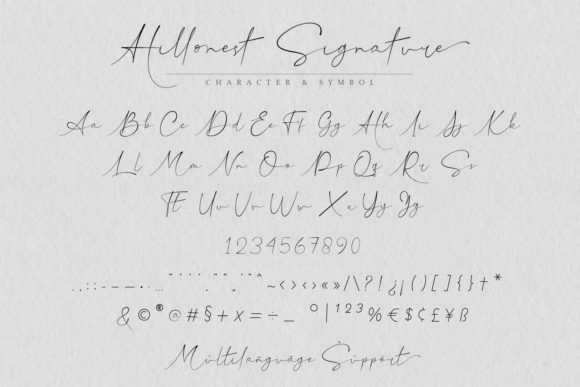 Hillonest Signature
CHARACTER & SYMBOL
Aa Bb Cc Dd Ee Ff Gg Hh Ii Jj Kk
Ll Mm Nn Oo Pp Qq Rr Ss
Tt Uu Vv Ww Xx Yy Zz
1234567890
~ ‹ › < > « » / \ ? ! ¿ ¡ ( ) [ ] { } † *
& © ® @ # § + x = ÷ _ ° | ¹ ² ³ % € $ ¢ £ ¥ ß
Múltilanguáge Súpport